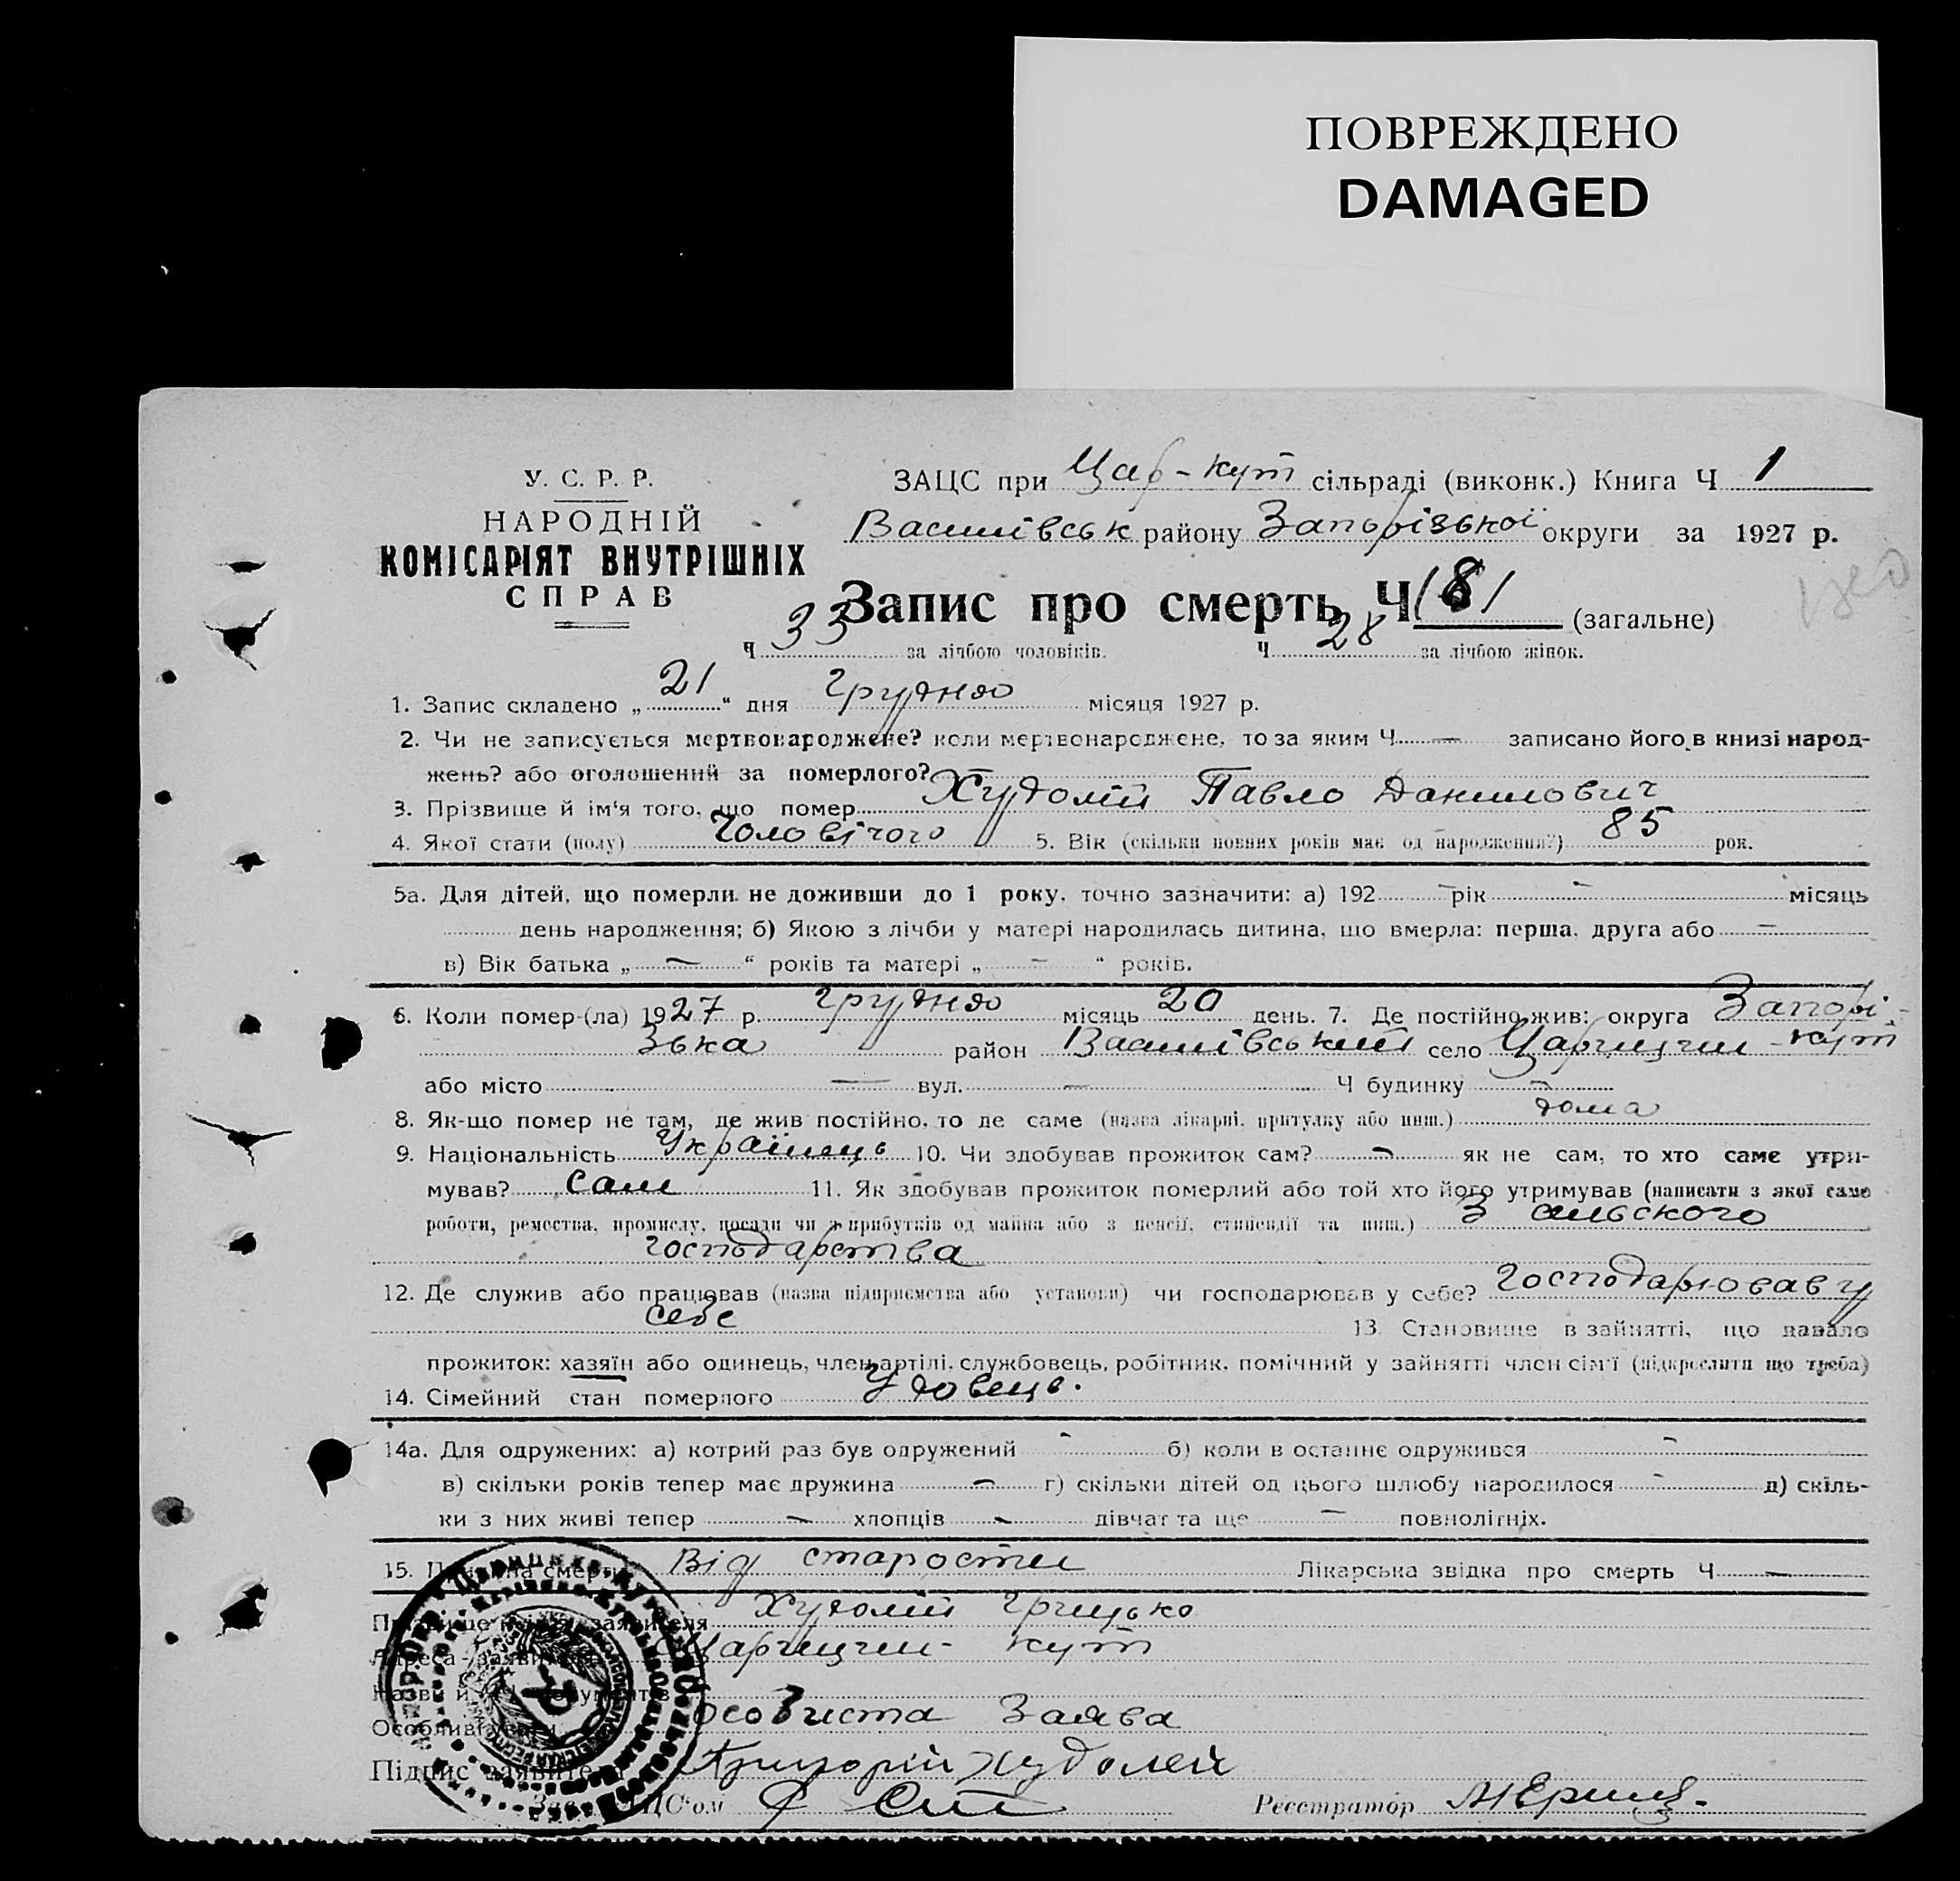 ПОВРЕЖДЕНО
DAMAGED
У. С. Р. Р.
НАРОДНІЙ
КОМІСАРІЯТ ВНУТРІШНІХ
СПРАВ
ЗАЦС при Цар-кут сільраді (виконк.) Книга Ч 1
Василівськ району Запорізької округи за 1927 р.
Запис про смерть Ч (загальне)
Ч 33 за лічбою чоловіків. Ч 28 за лічбою жінок.
1. Запис складено „ 21 “ дня грудня місяця 1927 р.
2. Чи не записується мертвонароджене? коли мертвонароджене, то за яким Ч — записано його в книзі народ-
жень? або оголошений за померлого? —
3. Прізвище й ім'я того, що помер Худолій Павло Данилович
4. Якої стати (полу) чоловічого 5. Вік (скільки повних років має од народження?) 85 рок.
5а. Для дітей, що померли, не доживши до 1 року, точно зазначити: а) 192 – рік – місяць
день народження; б) Якою з лічби у матері народилась дитина, що вмерла: перша, друга або —
в) Вік батька „ — “ років та матері „ – “ років.
6. Коли помер-(ла) 1927 р. грудня місяць 20 день. 7. Де постійно жив: округа Запорі-
зька район Василівський село Царицин-кут
або місто — вул. — Ч будинку —
8. Як-що помер не там, де жив постійно, то де саме (назва лікарні, притулку або инш.) дома
9. Національність Українець 10. Чи здобував прожиток сам? – як не сам, то хто саме утри-
мував? сам 11. Як здобував прожиток померлий або той хто його утримував (написати з якої саме
роботи, ремества, промислу, посади чи з прибутків од майна або з пенсії, стипендії та инш.) З сільського
господарства
12. Де служив або працював (назва підприємства або установи) чи господарював у себе? Господарював у
себе 13. Становище в зайнятті, що давало
прожиток: хазяїн або одинець, член артілі, службовець, робітник, помічний у зайнятті член сім'ї (підкреслити що треба)
14. Сімейний стан померлого Удовець.
14а. Для одружених: а) котрий раз був одружений – б) коли в останнє одружився –
в) скільки років тепер має дружина – г) скільки дітей од цього шлюбу народилося – д) скіль-
ки з них живі тепер – хлопців – дівчат та ще – повнолітніх.
15. Причина смерти Від старости Лікарська звідка про смерть Ч —
Прізвище й ім'я заявителя Худолій Грицько
Адреса заявителя Царицин-кут
Назви й документів
Особливі уваги особиста заява
Підпис заявителя Григорій Худолей
Зав. ЗАЦС'ом Реєстратор